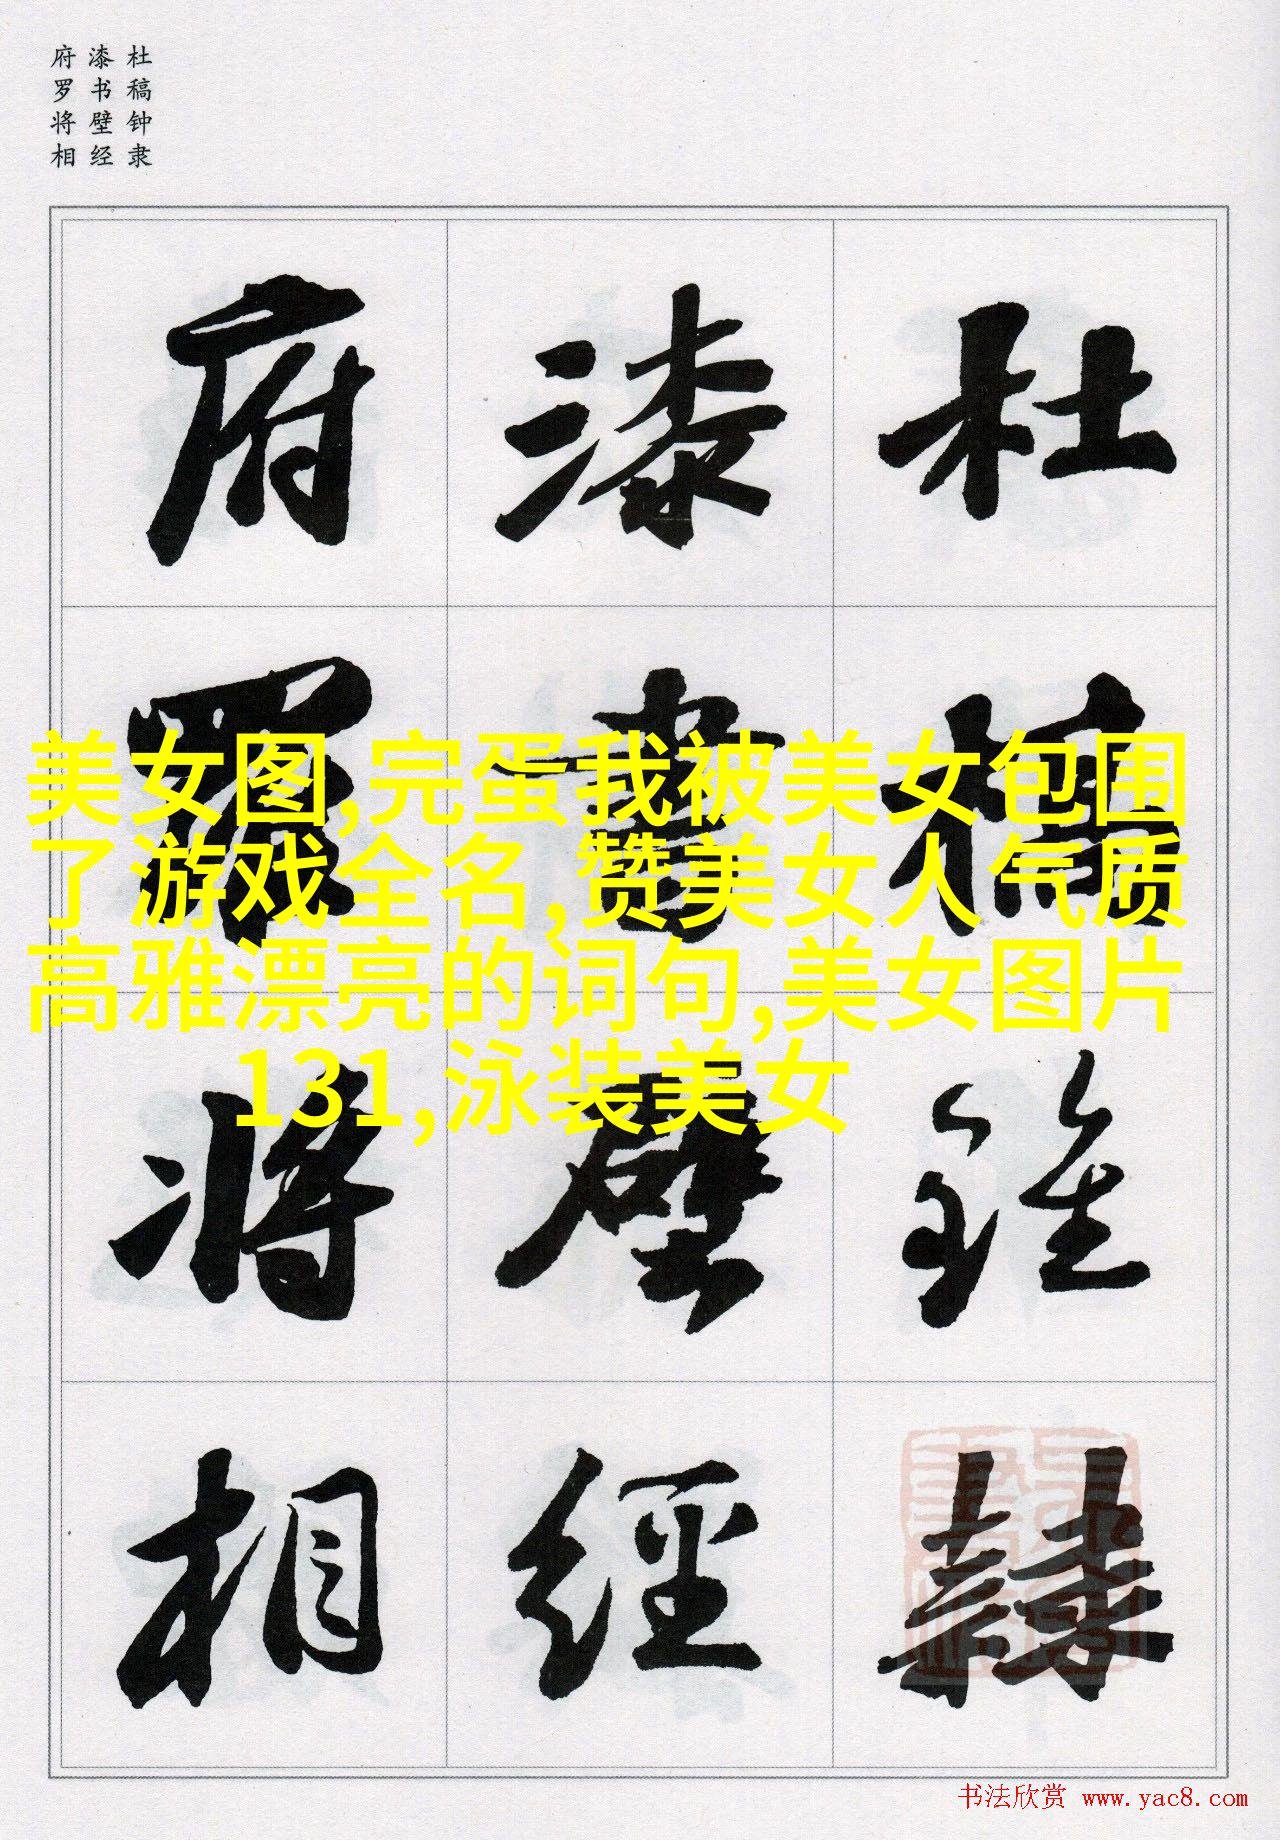 杜稿钟隶
漆书壁经
府罗将相
杜稿鍾隸
漆書壁經
府羅将相
美女图,完蛋我被美女包围
了游戏全名,赞美女人气质
高雅漂亮的词句,美女图片
131,泳装美女
书法欣赏 www.yac8.com